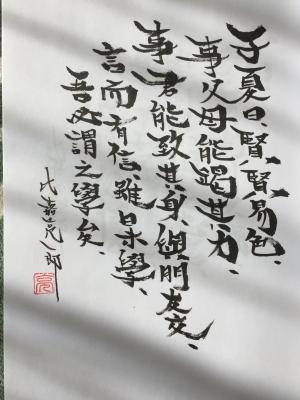 子夏曰、賢賢易色、
事父母能竭其力、
事君能致其身、與朋友交、
言而有信、雖曰未學、
吾必謂之學矣、
嘉 郎